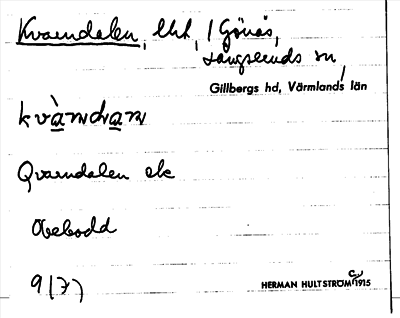 Kvarndalen, lht, / Gönäs,
Långseruds sn,
Gillbergs hd, Värmlands län
kvàndan
Qvarndalen ek
Obebodd
9/77
HERMAN HULTSTRÖM 1915